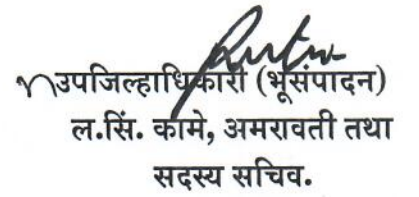 उपजिल्हाधिकारी (भूसंपादन)
ल.सिं. कामे, अमरावती तथा
सदस्य सचिव.